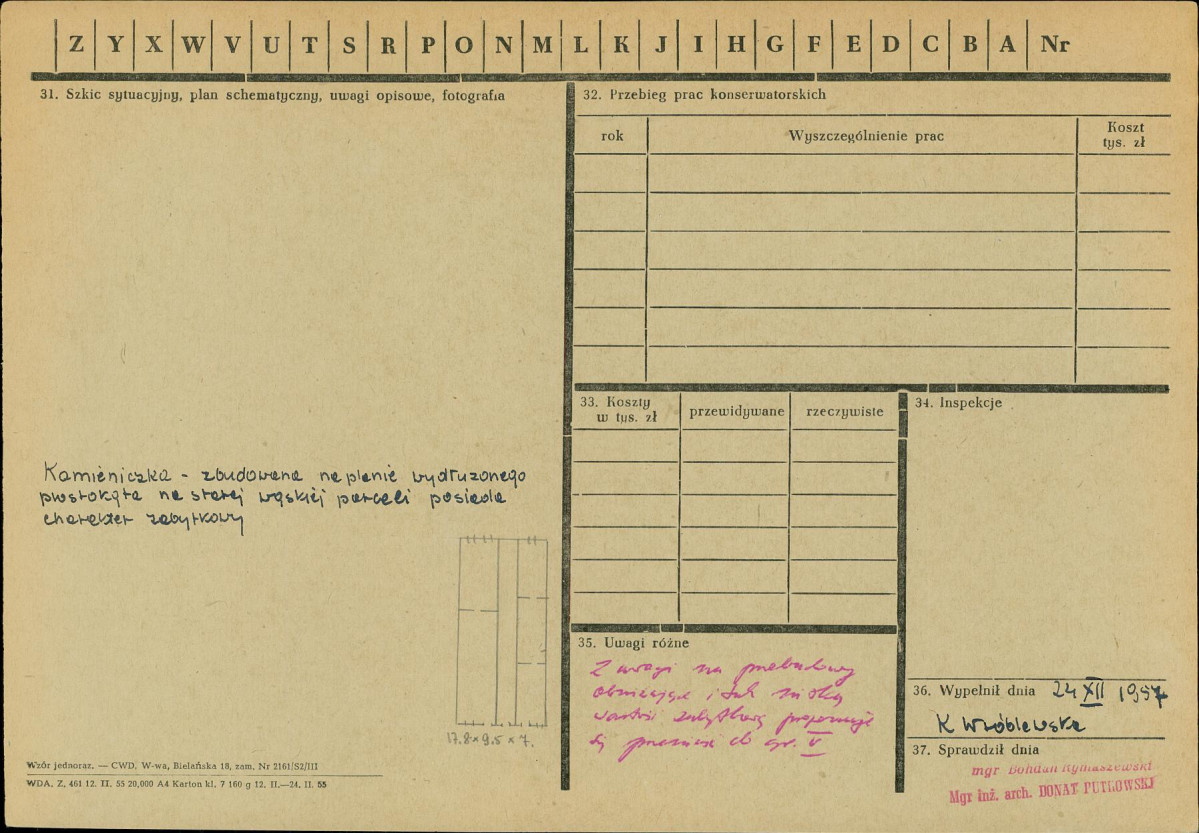 Z Y X W V U T S R P O N M L K J I H G F E D C B A Nr
31. Szkic sytuacyjny, plan schematyczny, uwagi opisowe, fotografia
Kamieniczka - zbudowana na planie wydłużonego
prostokąta na starej wąskiej parceli posiada
charakter zabytkowy
17.8 x 9.5 x 7.
Wzór jednoraz. — CWD, W-wa, Bielańska 18, zam. Nr 2161/S2/III
WDA. Z. 461 12. II. 55 20,000 A4 Karton kl. 7 160 g 12. II.—24. II. 55
32. Przebieg prac konserwatorskich
rok
Wyszczególnienie prac
Koszt
tys. zł
33. Koszty
w tys. zł
przewidywane
rzeczywiste
34. Inspekcje
35. Uwagi różne
Z uwagi na przebudowy
obniżające i tak niską
wartość zabytkową proponuje
się przenieść do gr. V
36. Wypełnił dnia 24 XII 1957
K Wróblewska
37. Sprawdził dnia
mgr Bohdan Rymaszewski
Mgr inż. arch. DONAT PUTKOWSKI